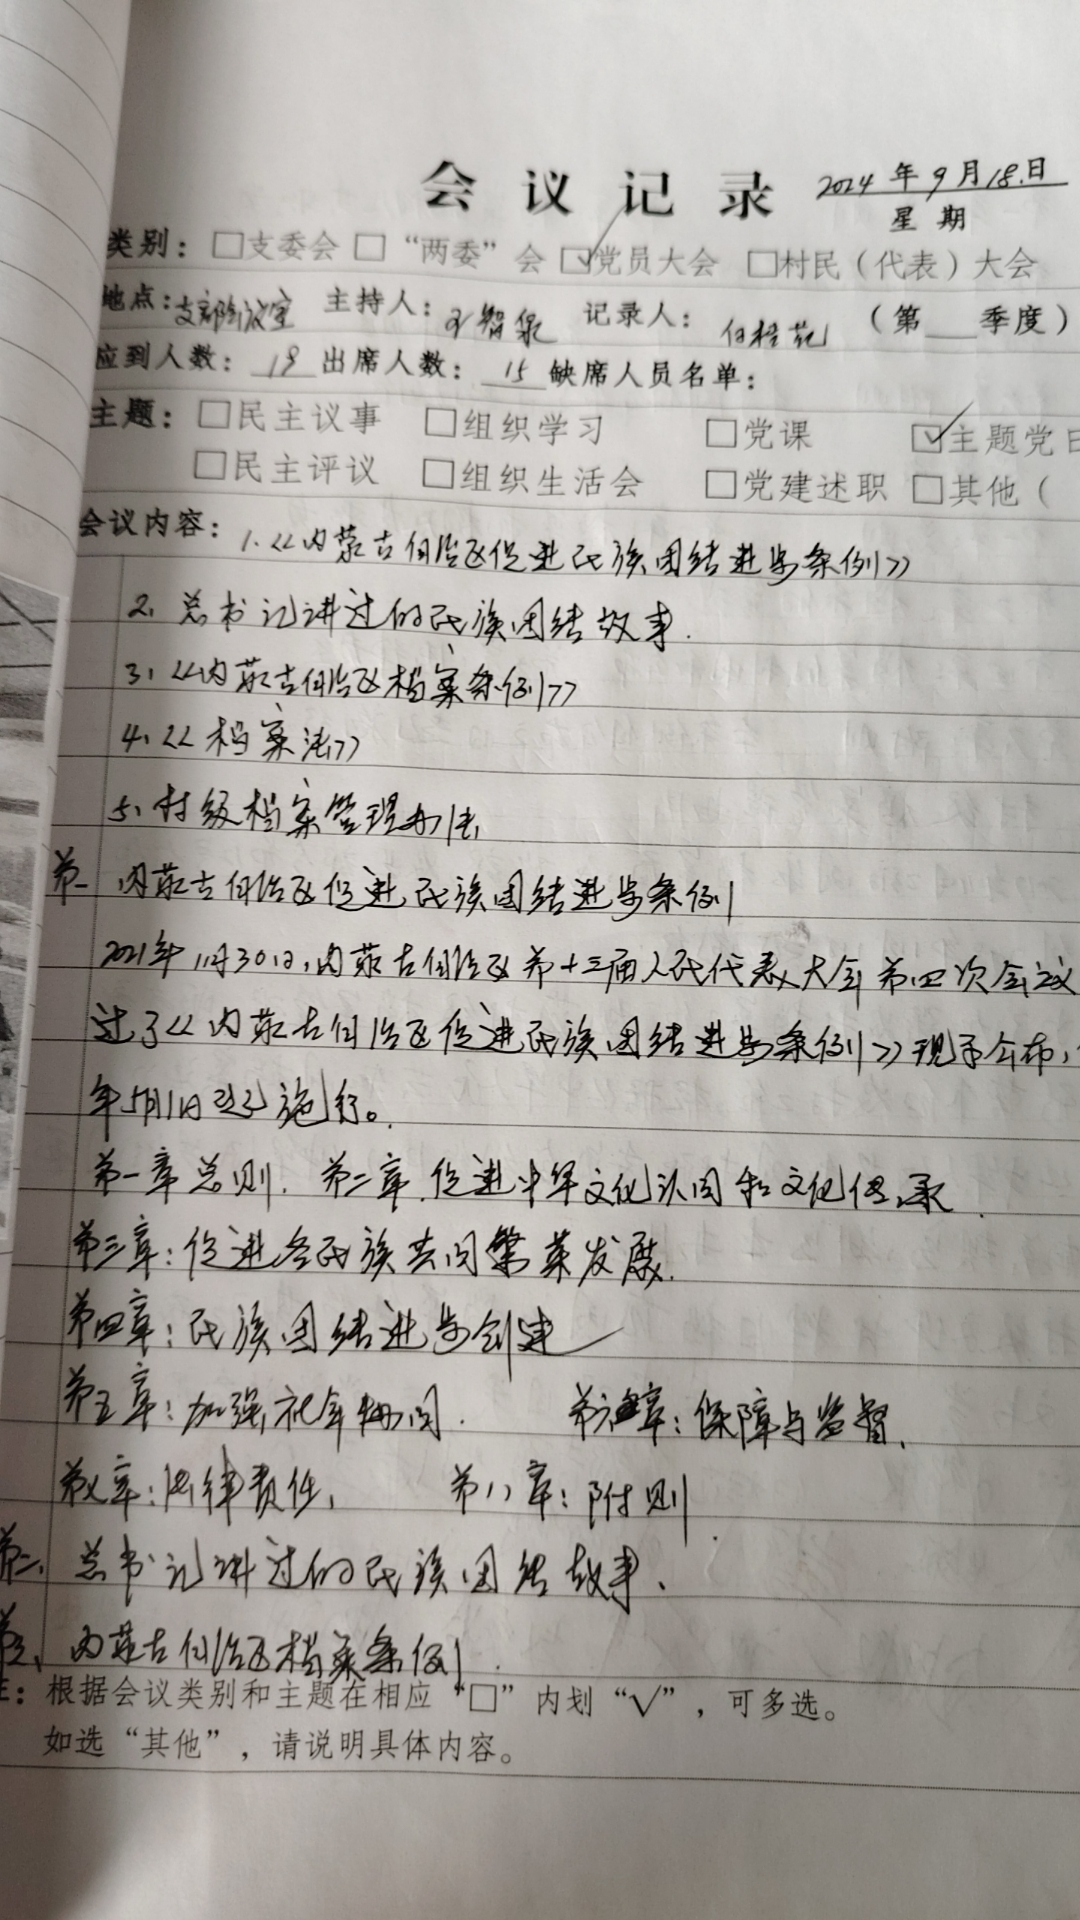 会议记录 2024年9月18日
星期
类别：□支委会 □“两委”会 ☑党员大会 □村民（代表）大会
地点：支部会议室 主持人：智泉 记录人： （第 季度）
应到人数：19 出席人数：15 缺席人员名单：
主题：□民主议事 □组织学习 □党课 ☑主题党日
□民主评议 □组织生活会 □党建述职 □其他（
会议内容：1.《内蒙古自治区促进民族团结进步条例》
2、总书记讲过的民族团结故事.
3、《内蒙古自治区档案条例》
4、《档案法》
5、村级档案管理办法
第一 内蒙古自治区促进民族团结进步条例
2021年 月30日，内蒙古自治区第十三届人民代表大会第四次会议
过了《内蒙古自治区促进民族团结进步条例》现予公布，
年5月1日起施行。
第一章总则. 第二章.促进中华文化认同和文化传承.
第三章：促进各民族共同繁荣发展.
第四章：民族团结进步创建
第五章：加强社会协同. 第六章：保障与监督.
第七章：法律责任、 第八章：附则.
第二、总书记讲过的民族团结故事、
第三、内蒙古自治区档案条例.
注：根据会议类别和主题在相应“□”内划“√”，可多选。
如选“其他”，请说明具体内容。